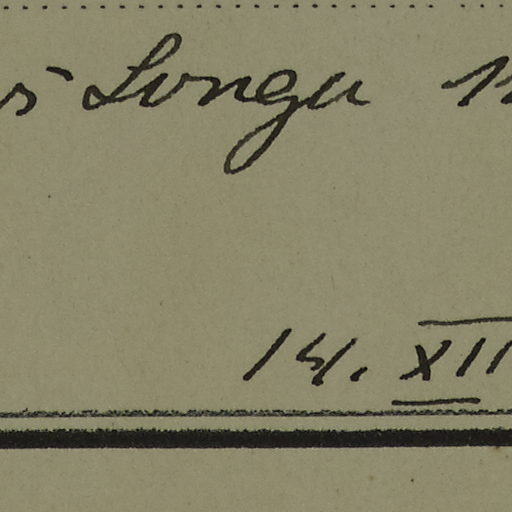 Longu
14. XII